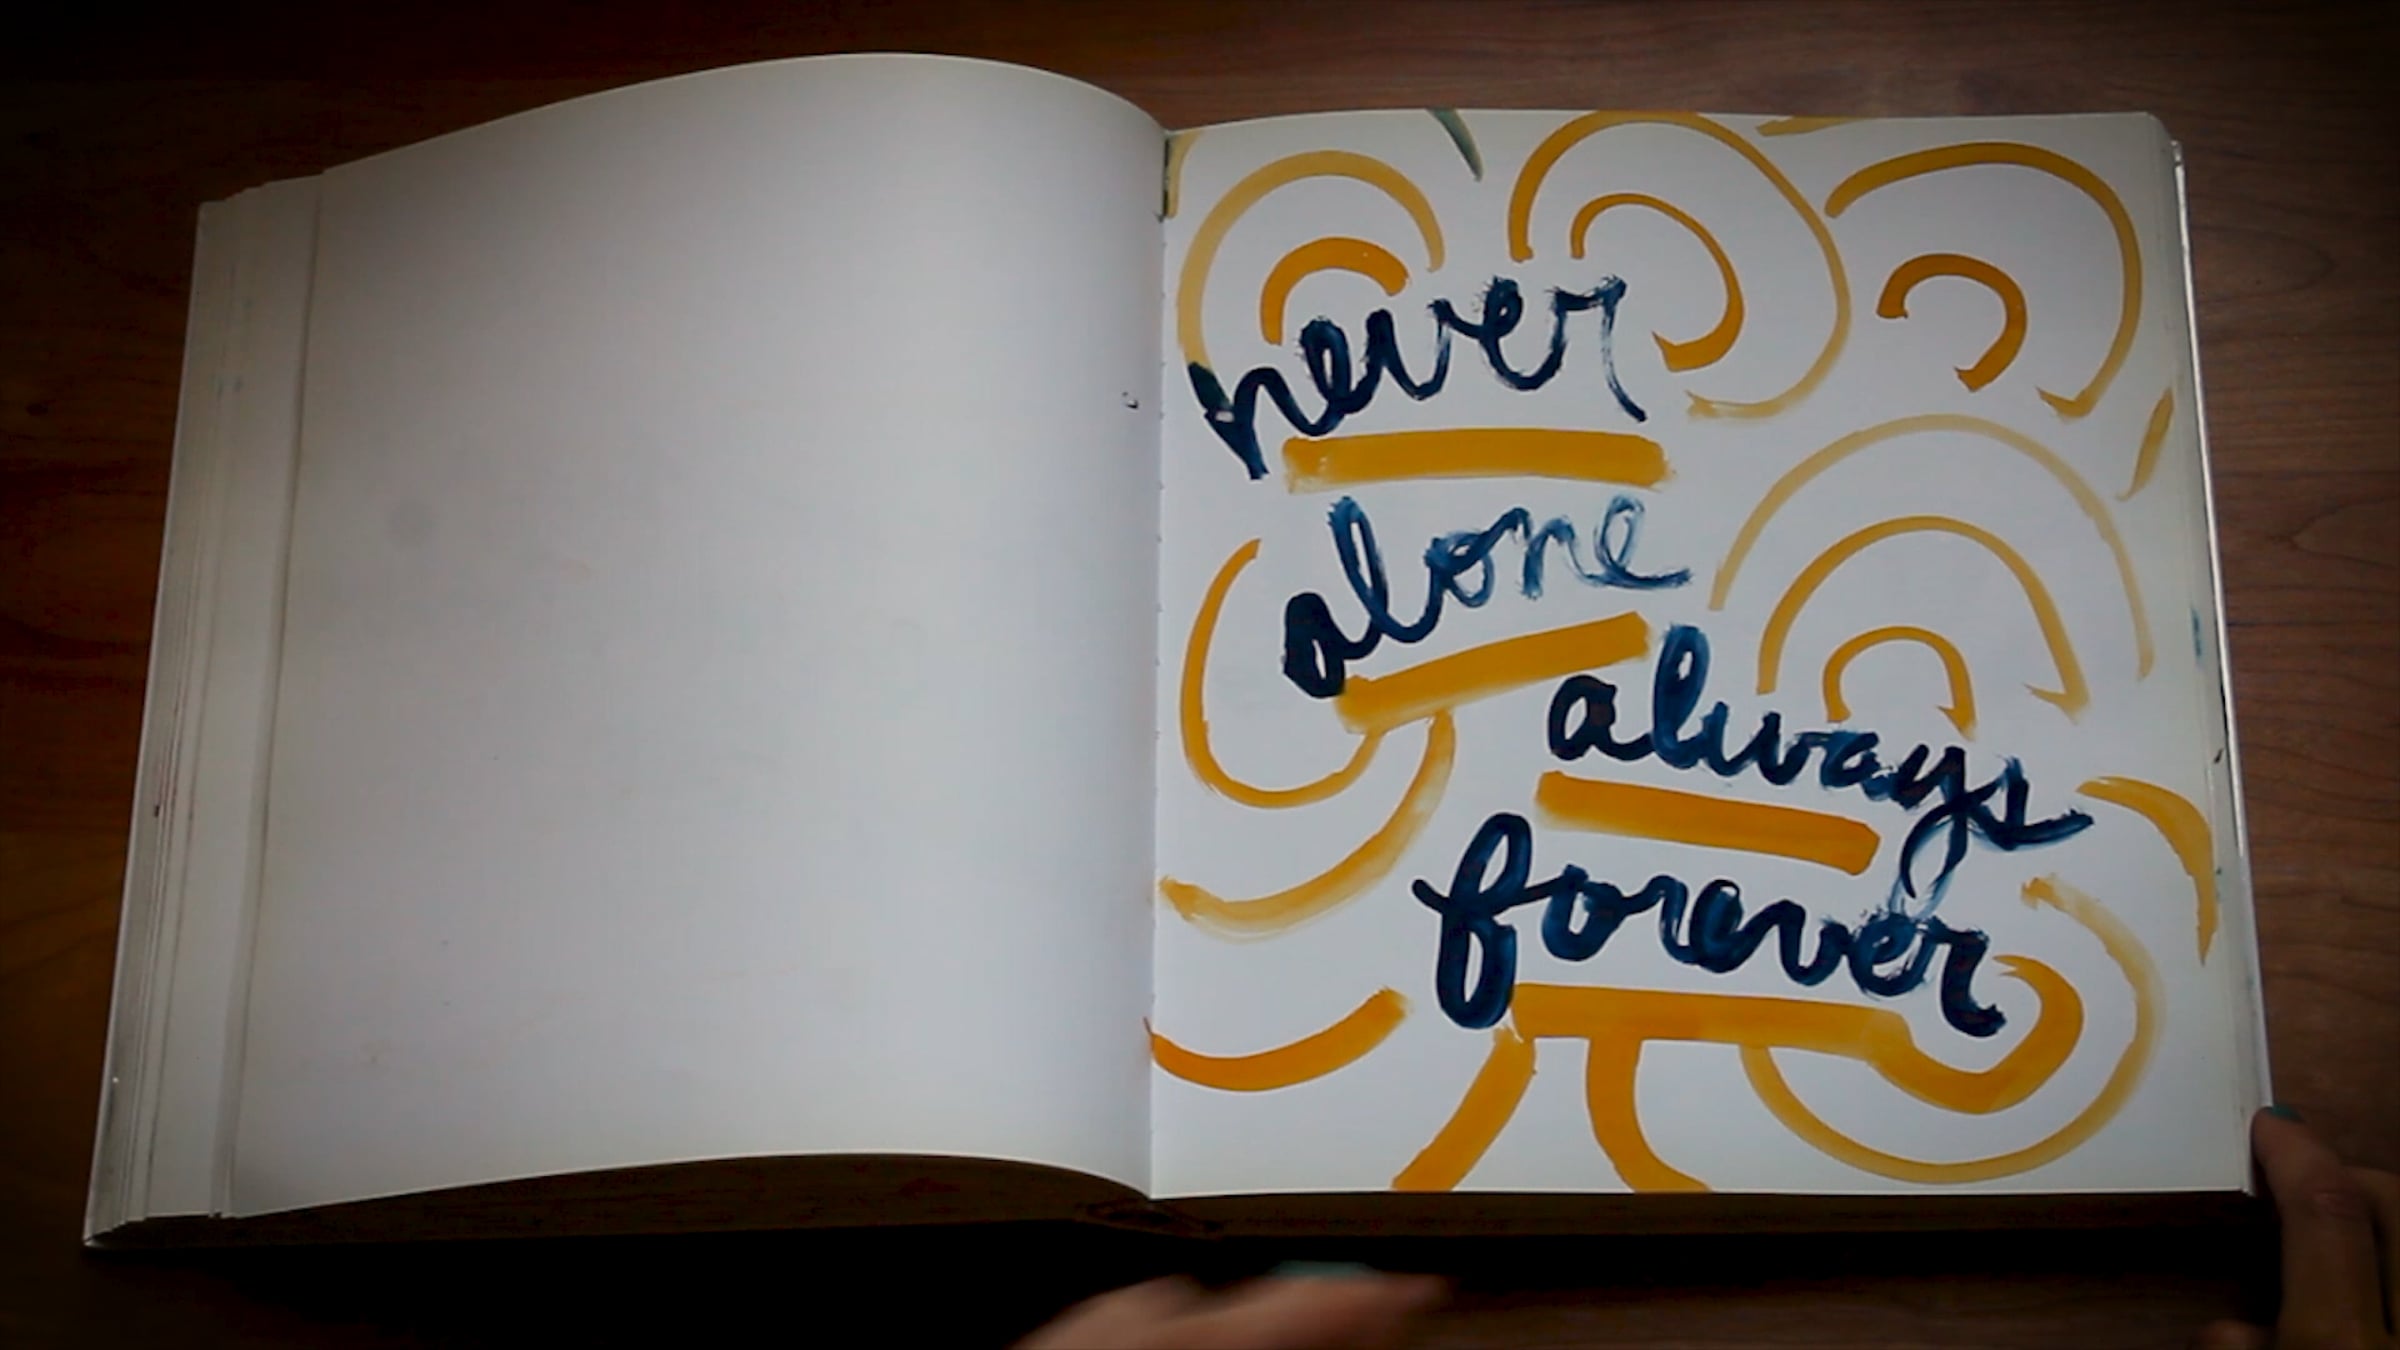 never
alone
always
forever